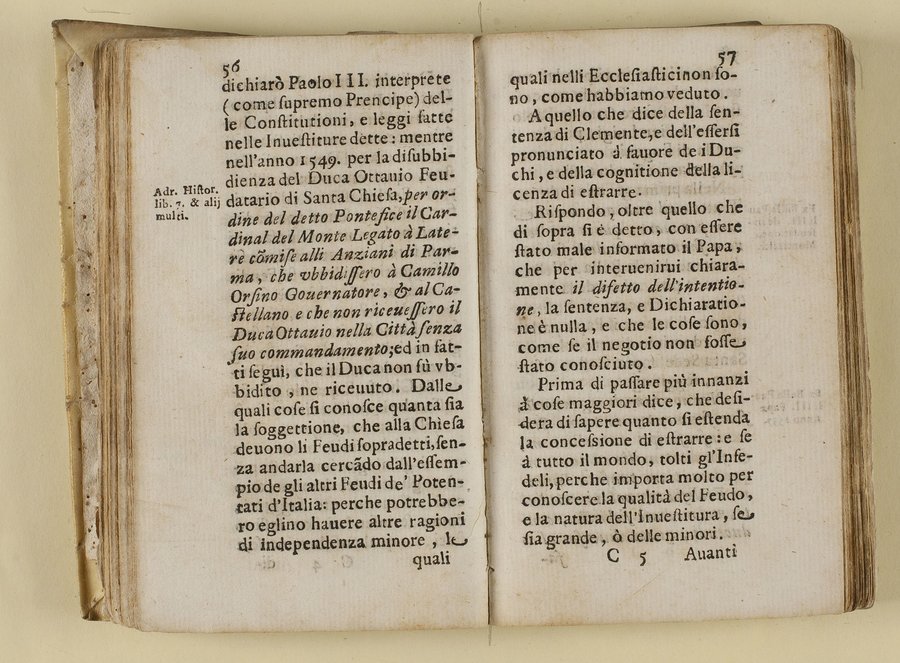 56
dichiarò Paolo III. interprete
( come ſupremo Prencipe) del-
le Conſtitutioni, e leggi fatte
nelle Inueſtiture dette : mentre
nell'anno 1549. per la diſubbi-
dienza del Duca Ottauio Feu-
datario di Santa Chieſa, per or-
dine del detto Pontefice il Car-
dinal del Monte Legato à Late-
re cõmiſe alli Anziani di Par-
ma, che vbbidiſſero à Camillo
Orſino Gouernatore, & al Ca-
ſtellano e che non riceueſſero il
Duca Ottauio nella Città ſenza
ſuo commandamento; ed in fat-
ti ſeguì, che il Duca non fù vb-
bidito , ne riceuuto. Dalle
quali coſe ſi conoſce quanta ſia
la ſoggettione, che alla Chieſa
deuono li Feudi ſopradetti, ſen-
za andarla cercãdo dall'eſſem-
pio de gli altri Feudi de' Poten-
tati d'Italia: perche potrebbe-
ro eglino hauere altre ragioni
di independenza minore , le
quali
Adr. Hiſtor.
lib. 7. & alij
multi.
57
quali nelli Eccleſiaſtici non ſo-
no , come habbiamo veduto .
A quello che dice della ſen-
tenza di Clemente, e dell'eſſerſi
pronunciato à fauore de i Du-
chi , e della cognitione della li-
cenza di eſtrarre.
Riſpondo , oltre quello che
di ſopra ſi è detto, con eſſere
ſtato male informato il Papa,
che per interuenirui chiara-
mente il difetto dell'intentio-
ne , la ſentenza, e Dichiaratio-
ne è nulla , e che le coſe ſono,
come ſe il negotio non foſſe
ſtato conoſciuto .
Prima di paſſare più innanzi
à coſe maggiori dice, che deſi-
dera di ſapere quanto ſi eſtenda
la conceſsione di eſtrarre : e ſe
à tutto il mondo, tolti gl'Infe-
deli, perche importa molto per
conoſcere la qualità del Feudo ,
e la natura dell'Inueſtitura , ſe
ſia grande , ò delle minori .
C 5 Auanti